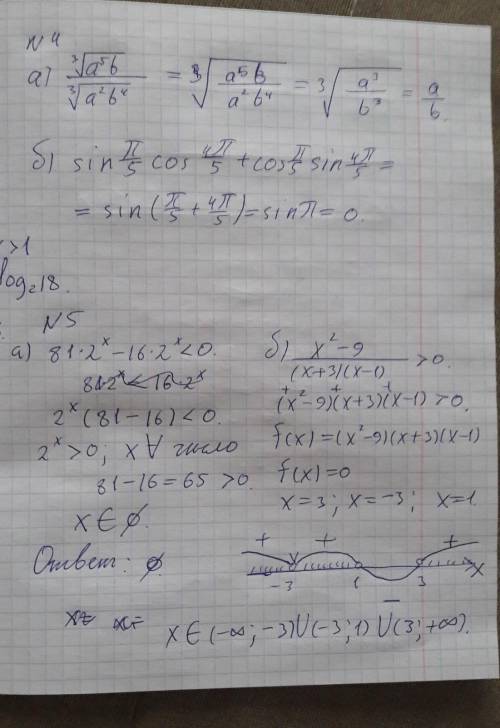 N 4
а) ∛(a⁵b) / ∛(a²b⁴) = ∛(a⁵b / a²b⁴) = ∛(a³ / b³) = a/b
б) sin π/5 cos 4π/5 + cos π/5 sin 4π/5 =
= sin(π/5 + 4π/5) = sin π = 0.
>1
log₂18.
N5
а) 81·2ˣ − 16·2ˣ < 0.
81·2ˣ < 16·2ˣ
2ˣ (81−16) < 0.
2ˣ > 0; x ∀ число
81−16 = 65 > 0.
x ∈ ∅.
Ответ: ∅.
б) (x²−9) / ((x+3)(x−1)) > 0.
+ + +
(x²−9)(x+3)(x−1) > 0.
f(x) = (x²−9)(x+3)(x−1)
f(x) = 0
x = 3; x = −3; x = 1.
+ + +
−3 1 3 x
−
x ∈ (−∞; −3)∪(−3; 1)∪(3; +∞).